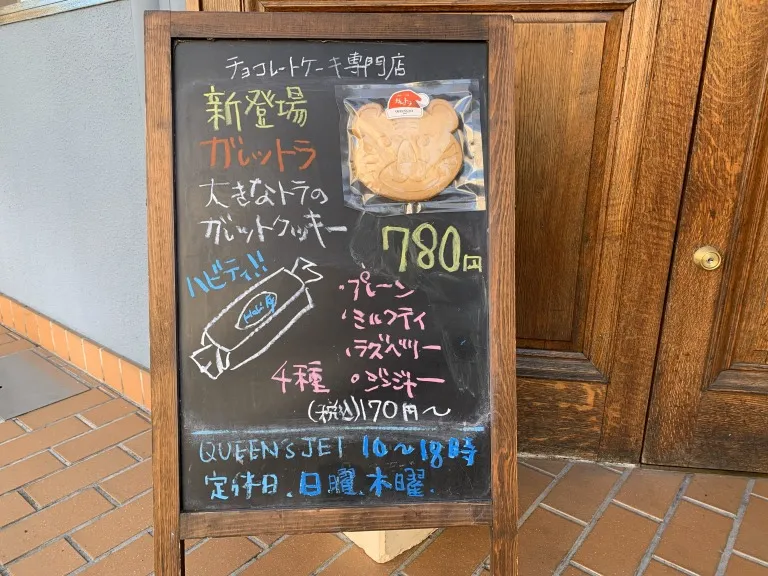 チョコレートケーキ専門店
新登場
ガレットラ
大きなトラの
ガレットクッキー
780円
ハビティ!!
・プレーン
・ミルクティ
・ラズベリー
4種 ・ジンジャー
(税込)170円〜
QUEEN'S JET 10〜18時
定休日、日曜、木曜.